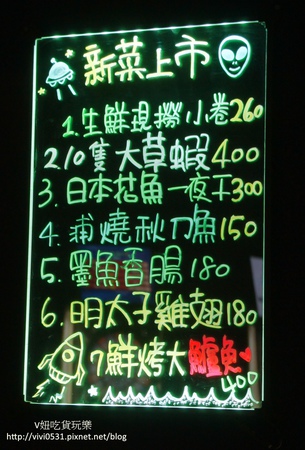 新菜上市
1.生鮮現撈小卷260
2.10隻大草蝦400
3.日本鯖魚一夜干300
4.蒲燒秋刀魚150
5.墨魚香腸180
6.明太子雞翅180
7鮮烤大鱸魚
400
V妞吃貨玩樂
http://vivi0531.pixnet.net/blog